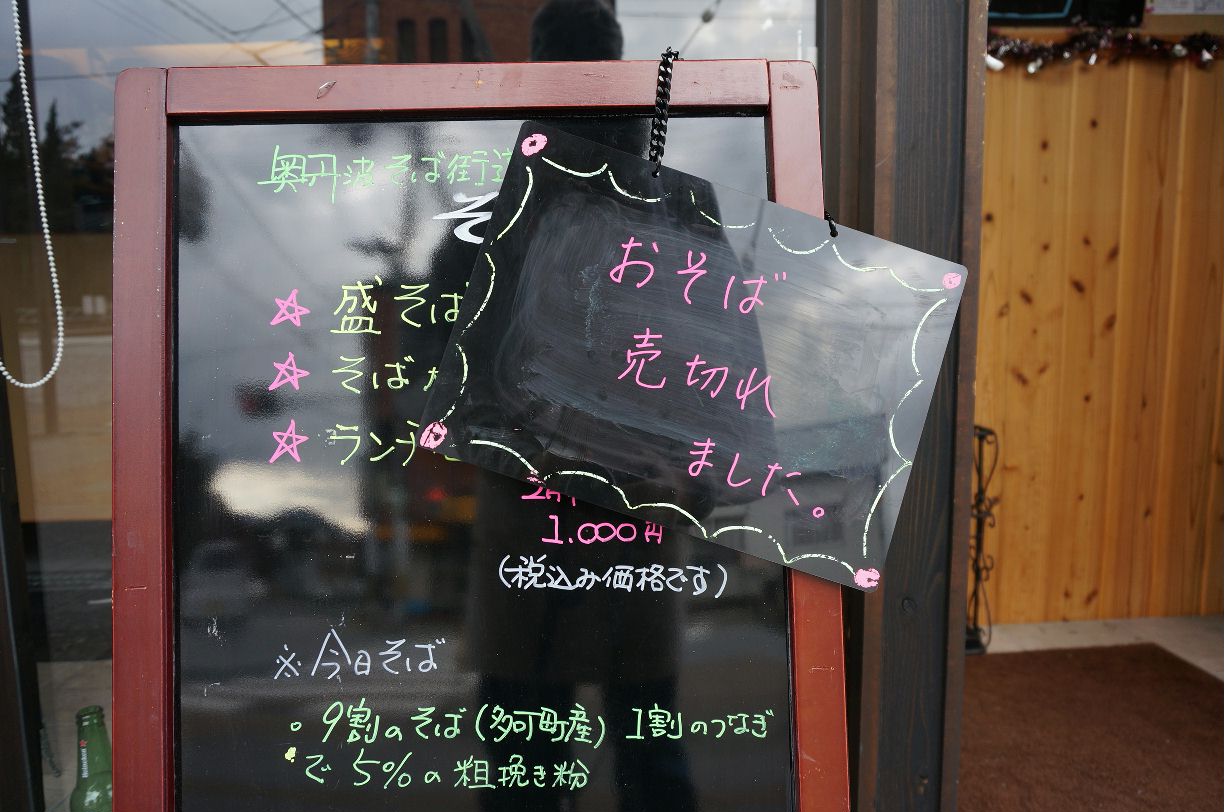 奥丹波そば街道
そ
☆ 盛そば
☆ そば
☆ ラン
おそば
売切れ
ました。
1.000円
(税込み価格です)
※今日そば
。9割のそば(多可町産) 1割のつなぎ
で 5%の粗挽き粉
Heineken